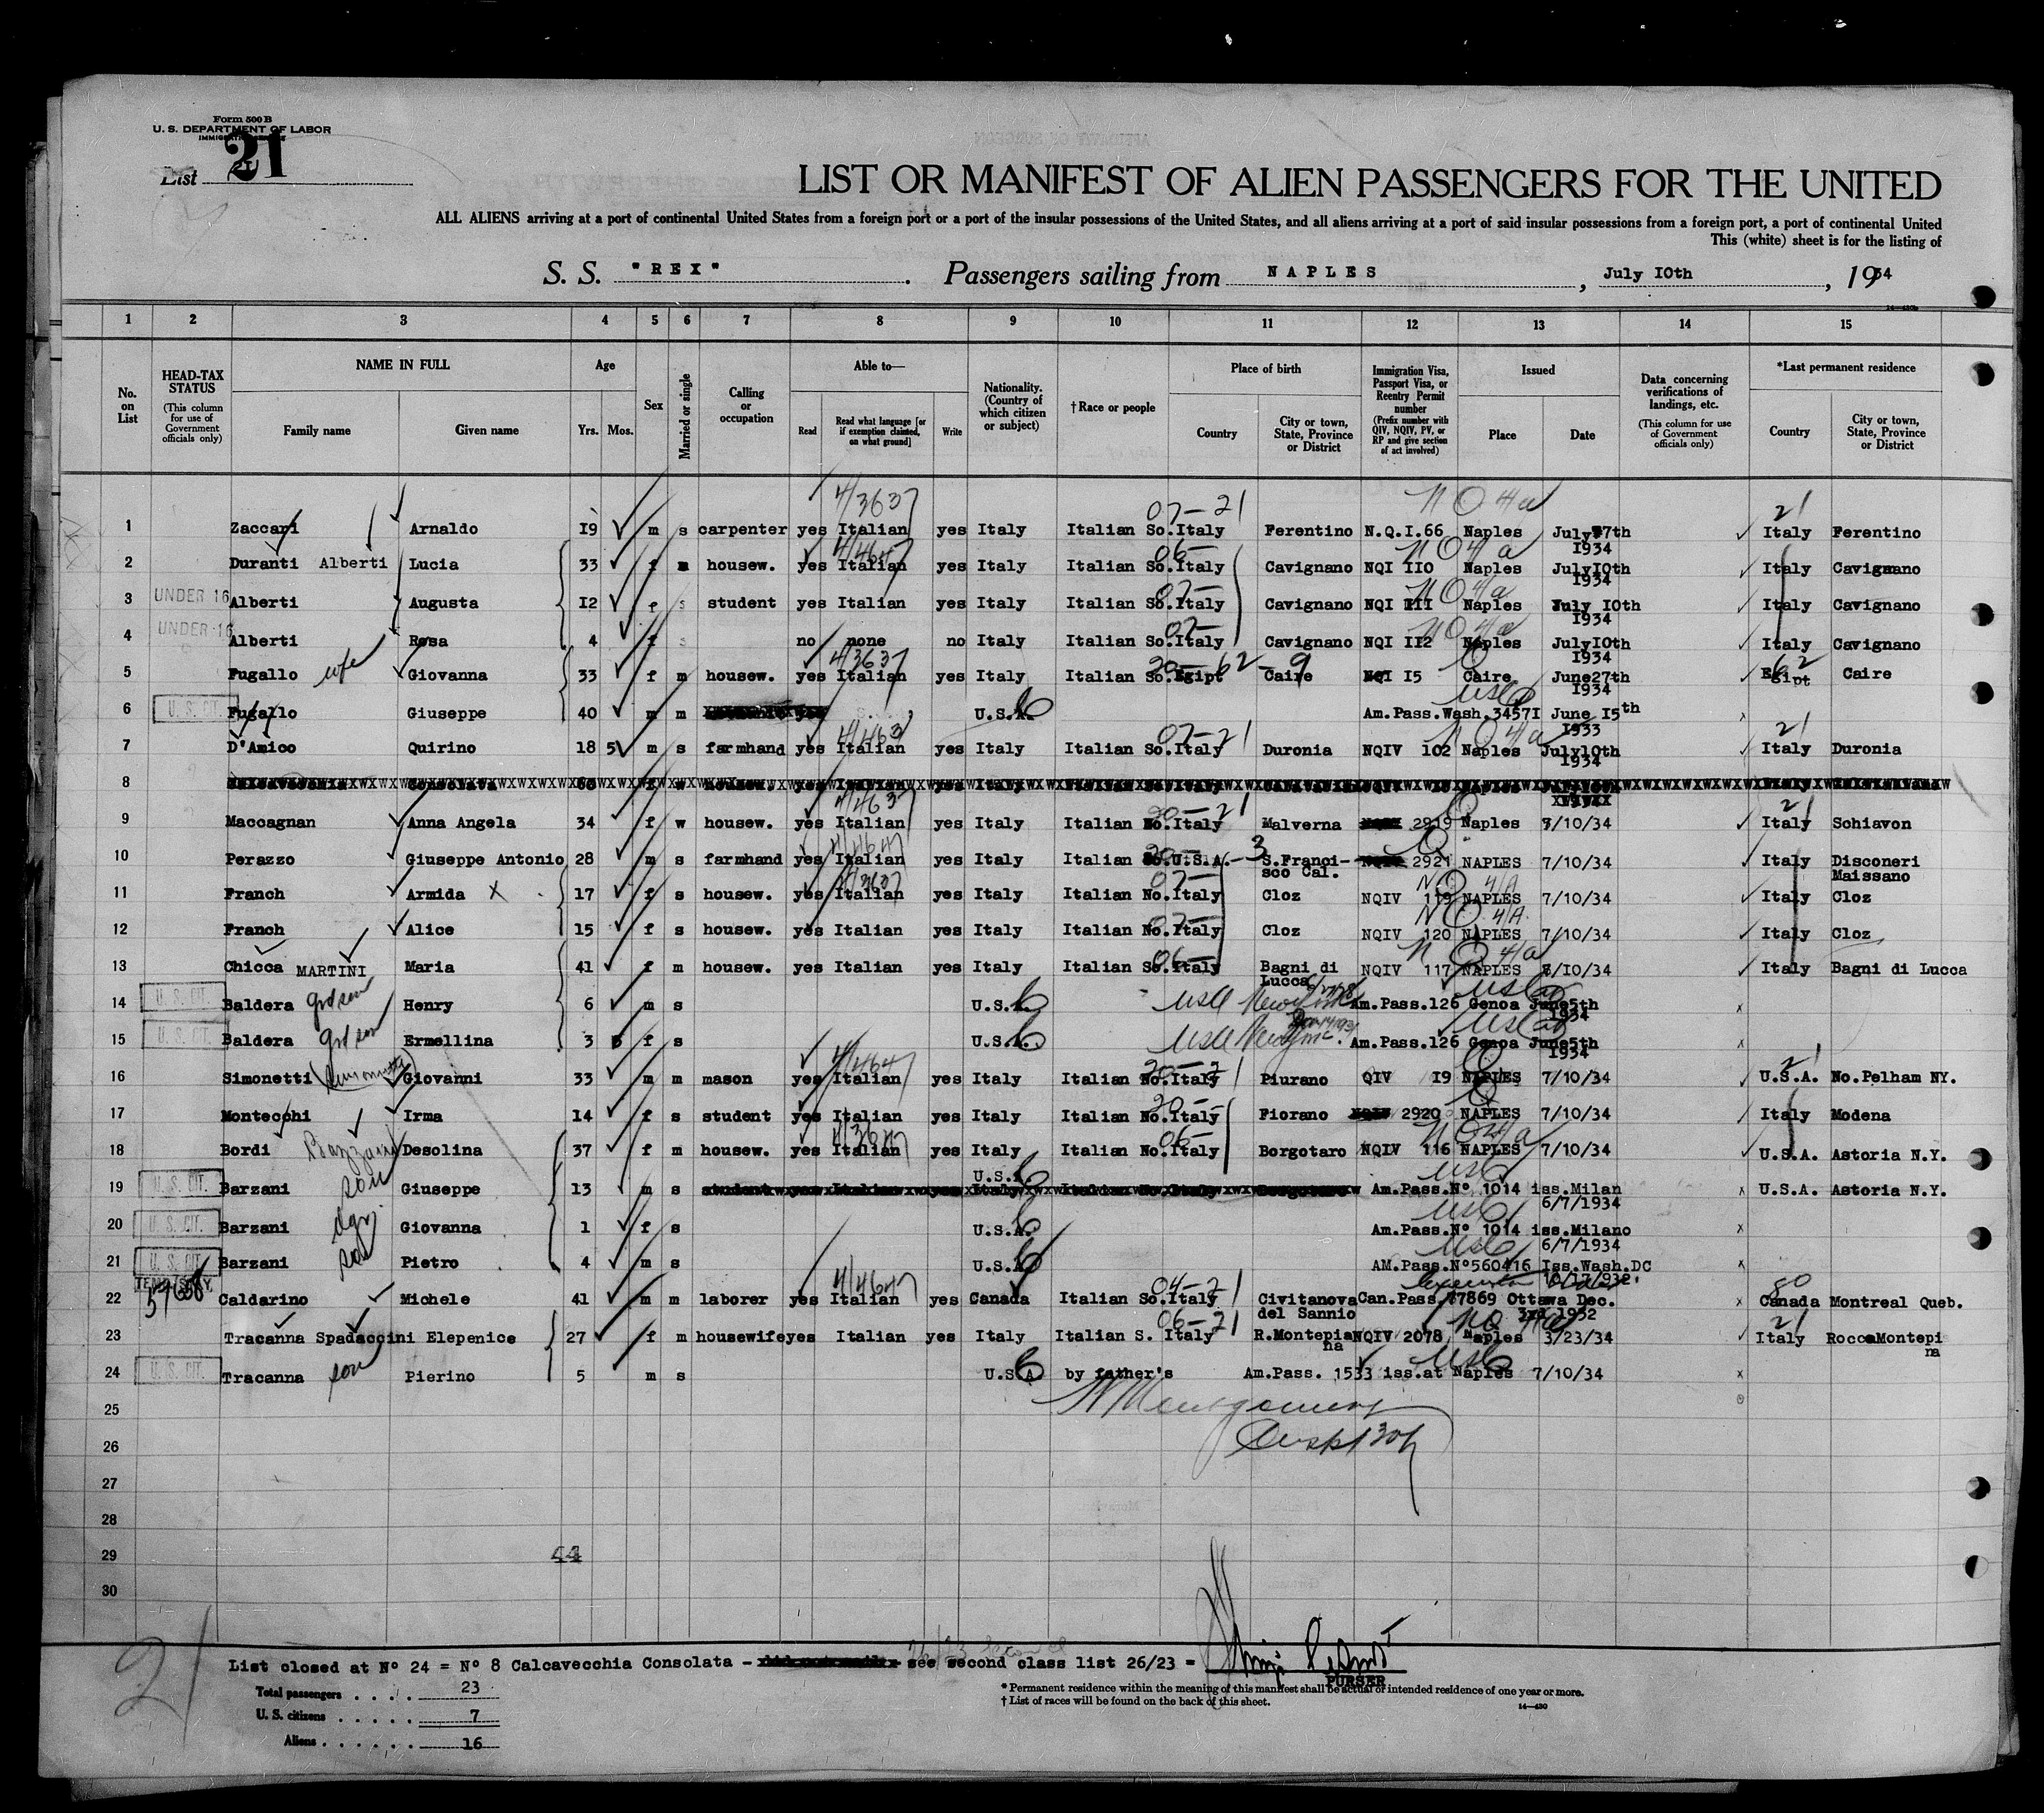 Form 500 B
U. S. DEPARTMENT OF LABOR
List 21
LIST OR MANIFEST OF ALIEN PASSENGERS FOR THE UNITED
ALL ALIENS arriving at a port of continental United States from a foreign port or a port of the insular possessions of the United States, and all aliens arriving at a port of said insular possessions from a foreign port, a port of continental United
This (white) sheet is for the listing of
S. S. "REX". Passengers sailing from NAPLES, July I0th, 1934
1 2 3 4 5 6 7 8 9 10 11 12 13 14 15
No. on List
HEAD-TAX STATUS (This column for use of Government officials only)
NAME IN FULL Family name Given name
Age Yrs. Mos.
Sex
Married or single
Calling or occupation
Able to— Read Read what language [or if exemption claimed, on what ground] Write
Nationality. (Country of which citizen or subject)
†Race or people
Place of birth Country City or town, State, Province or District
Immigration Visa, Passport Visa, or Reentry Permit number (Prefix number with QIV, NQIV, PV, or RP and give section of act involved)
Issued Place Date
Data concerning verifications of landings, etc. (This column for use of Government officials only)
*Last permanent residence Country City or town, State, Province or District
1 Zaccari Arnaldo I9 m s carpenter yes Italian yes Italy Italian So. Italy Ferentino N.Q.I.66 Naples July 7th I934 Italy Ferentino
2 Duranti Alberti Lucia 33 f m housew. yes Italian yes Italy Italian So. Italy Cavignano NQI II0 Naples July I0th I934 Italy Cavignano
3 UNDER 16 Alberti Augusta I2 f s student yes Italian yes Italy Italian So. Italy Cavignano NQI III Naples July 10th I934 Italy Cavignano
4 UNDER 16 Alberti Rosa 4 f s no none no Italy Italian So. Italy Cavignano NQI II2 Naples July I0th I934 Italy Cavignano
5 Fugallo wfe Giovanna 33 f m housew. yes Italian yes Italy Italian So. Egipt Caire NQI I5 Caire June 27th I934 Egipt Caire
6 U. S. CIT. Fugallo Giuseppe 40 m m U.S.A. Am.Pass.Wash.3457I June I5th I933
7 D'Amico Quirino 18 5 m s farmhand yes Italian yes Italy Italian So. Italy Duronia NQIV 102 Naples July 10th 1934 Italy Duronia
8
9 Maccagnan Anna Angela 34 f w housew. yes Italian yes Italy Italian No. Italy Malverna 2919 Naples 7/10/34 Italy Schiavon
10 Perazzo Giuseppe Antonio 28 m s farmhand yes Italian yes Italy Italian U.S.A. S.Franci-sco Cal. 2921 NAPLES 7/10/34 Italy Disconeri Maissano
11 Franch Armida X 17 f s housew. yes Italian yes Italy Italian No. Italy Cloz NQIV 119 NAPLES 7/10/34 Italy Cloz
12 Franch Alice 15 f s housew. yes Italian yes Italy Italian No. Italy Cloz NQIV 120 NAPLES 7/10/34 Italy Cloz
13 Chicca MARTINI Maria 41 f m housew. yes Italian yes Italy Italian So. Italy Bagni di Lucca NQIV 117 NAPLES /10/34 Italy Bagni di Lucca
14 U. S. CIT. Baldera grd son Henry 6 m s U.S.A. Am.Pass.126 Genoa June 5th 1934
15 U. S. CIT. Baldera grd son Ermellina 3 f s U.S.A. Am.Pass.126 Genoa June 5th 1934
16 Simonetti Giovanni 33 m m mason yes Italian yes Italy Italian No. Italy Piurano QIV I9 NAPLES 7/10/34 U.S.A. No.Pelham NY.
17 Montecchi Irma 14 f s student yes Italian yes Italy Italian No. Italy Fiorano 2920 NAPLES 7/10/34 Italy Modena
18 Bordi Bazzani Desolina 37 f m housew. yes Italian yes Italy Italian No. Italy Borgotaro NQIV 116 NAPLES 7/10/34 U.S.A. Astoria N.Y.
19 U. S. CIT. Barzani son Giuseppe 13 m s U.S.A. Am.Pass.N° 1014 iss.Milan 6/7/1934 U.S.A. Astoria N.Y.
20 U. S. CIT. Barzani dgr. Giovanna 1 f s U.S.A. Am.Pass.N° 1014 iss.Milano 6/7/1934
21 U. S. CIT. Barzani son Pietro 4 m s U.S.A. AM.Pass.N°560416 Iss.Wash.DC
22 Caldarino Michele 41 m m laborer yes Italian yes Canada Italian So. Italy Civitanova del Sannio Can.Pass.77869 Ottawa Dec. 3rd 1932 Canada Montreal Queb.
23 Tracanna Spadaccini Elepenice 27 f m housewife yes Italian yes Italy Italian S. Italy R.Montepiana NQIV 2078 Naples 3/23/34 Italy RoccaMontepina
24 U. S. CIT. Tracanna son Pierino 5 m s U.S.A. by father's Am.Pass. 1533 iss.at Naples 7/10/34
25
26
27
28
29 44
30
21
List closed at N° 24 = N° 8 Calcavecchia Consolata - see second class list 26/23 =
PURSER
Total passengers . . . . 23
U. S. citizens . . . . . 7
Aliens . . . . . . 16
* Permanent residence within the meaning of this manifest shall be actual or intended residence of one year or more.
† List of races will be found on the back of this sheet.
14—430